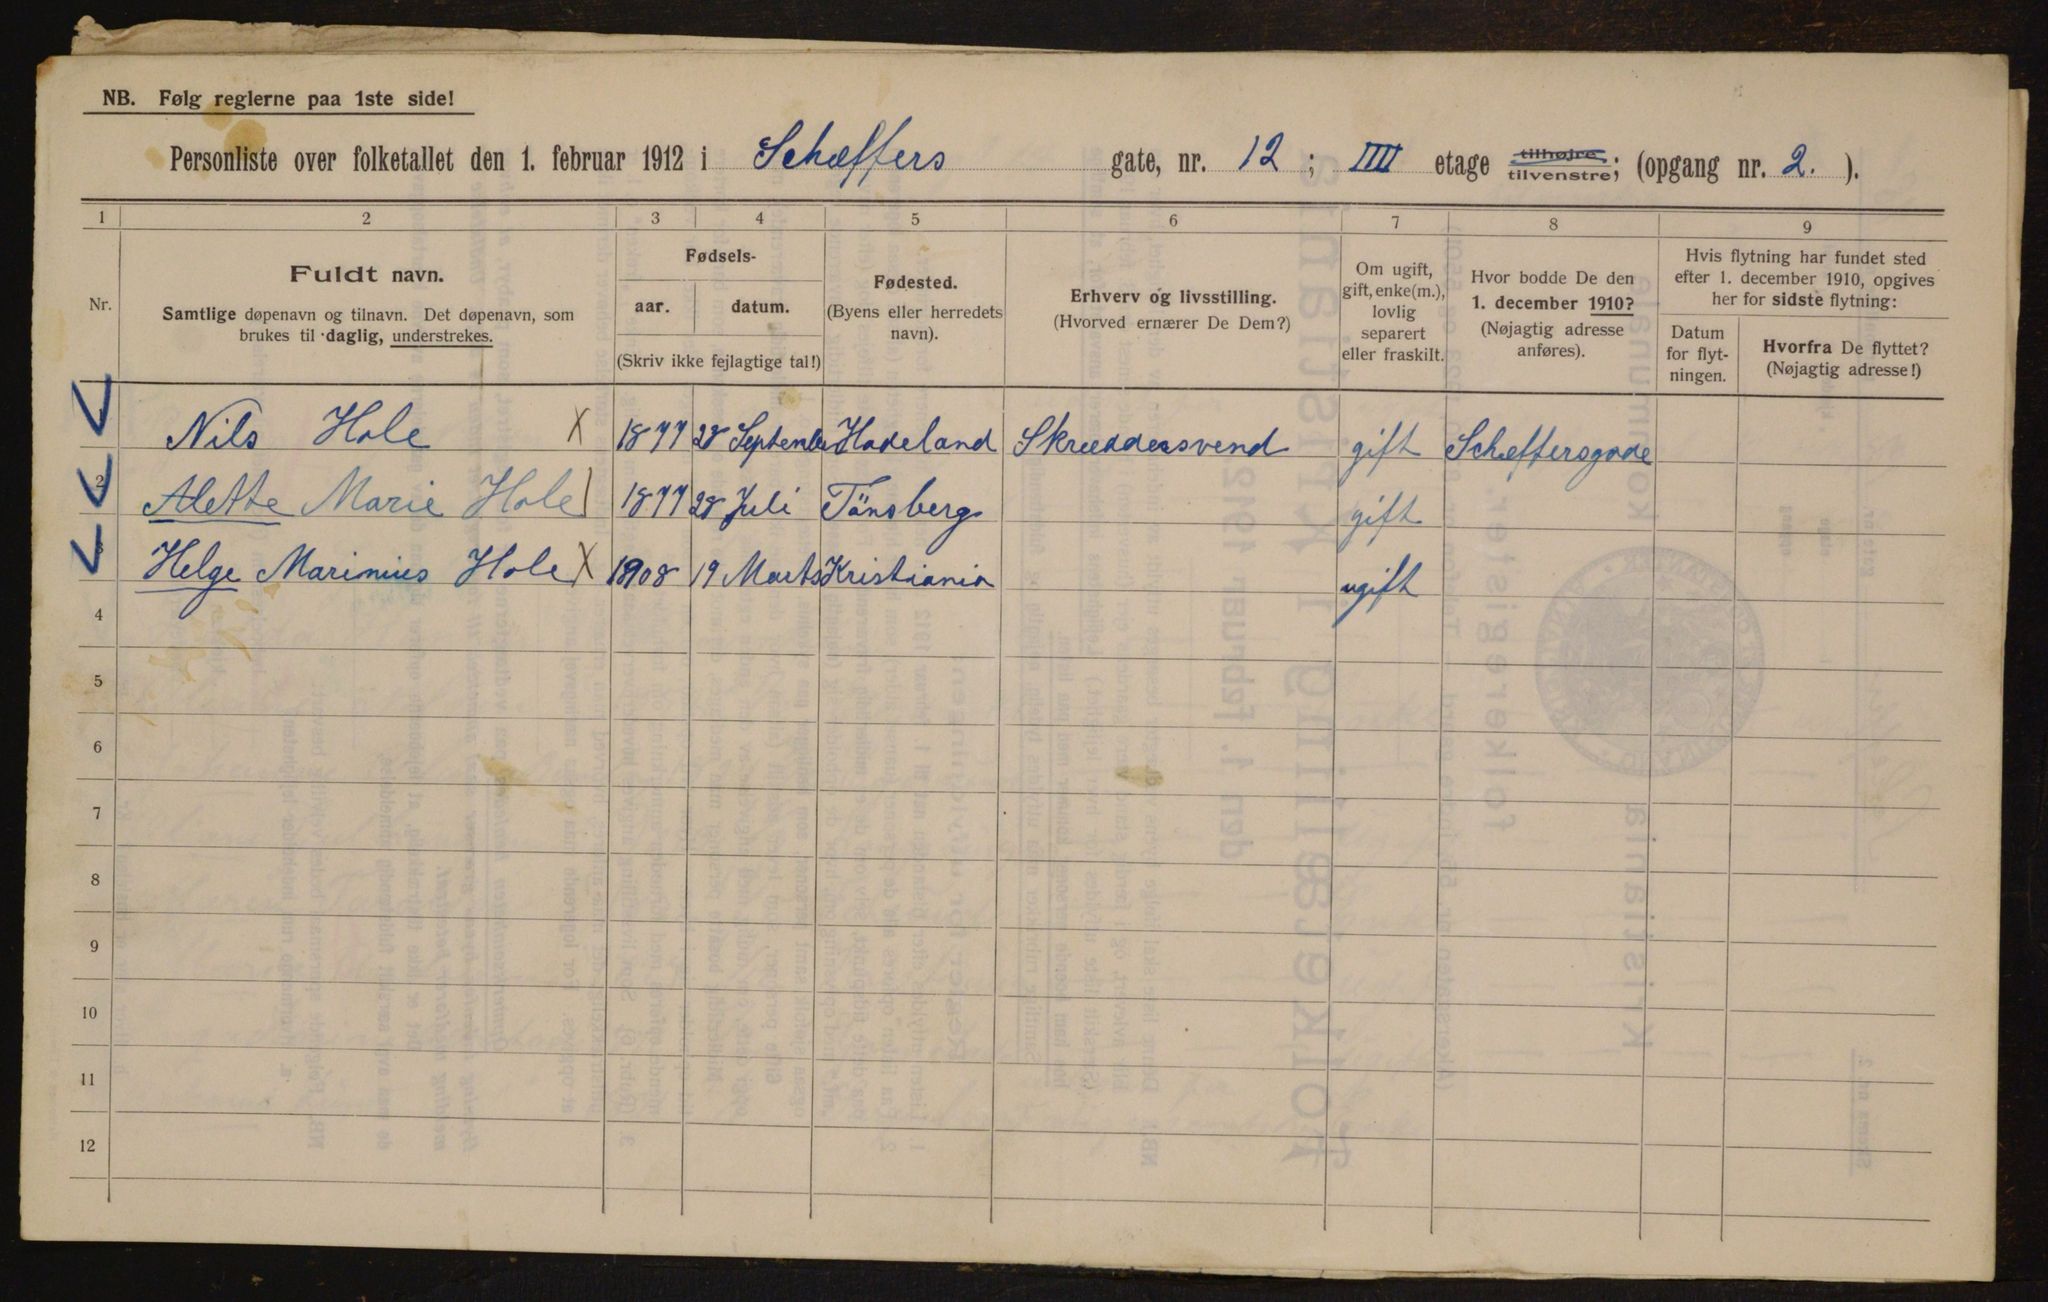 NB. Følg reglerne paa 1ste side!
Personliste over folketallet den 1. februar 1912 i Schæffers gate, nr. 12 ; IIII etage tilhøjre, tilvenstre; (opgang nr. 2. ).
1 2 3 4 5 6 7 8 9
Nr.
Fuldt navn.
Samtlige døpenavn og tilnavn. Det døpenavn, som
brukes til daglig, understrekes.
Fødsels-
aar. datum.
(Skriv ikke fejlagtige tal!)
Fødested.
(Byens eller herredets
navn).
Erhverv og livsstilling.
(Hvorved ernærer De Dem?)
Om ugift,
gift, enke(m.),
lovlig
separert
eller fraskilt.
Hvor bodde De den
1. december 1910?
(Nøjagtig adresse
anføres).
Hvis flytning har fundet sted
efter 1. december 1910, opgives
her for sidste flytning:
Datum
for flyt-
ningen.
Hvorfra De flyttet?
(Nøjagtig adresse!)
1 Nils Hole X 1877 28 September Hadeland Skræddersvend gift Schæffersgade
2 Alette Marie Hole 1877 28 Juli Tönsberg gift
3 Helge Marinius Hole X 1908 19 Marts Kristiania ugift
4
5
6
7
8
9
10
11
12